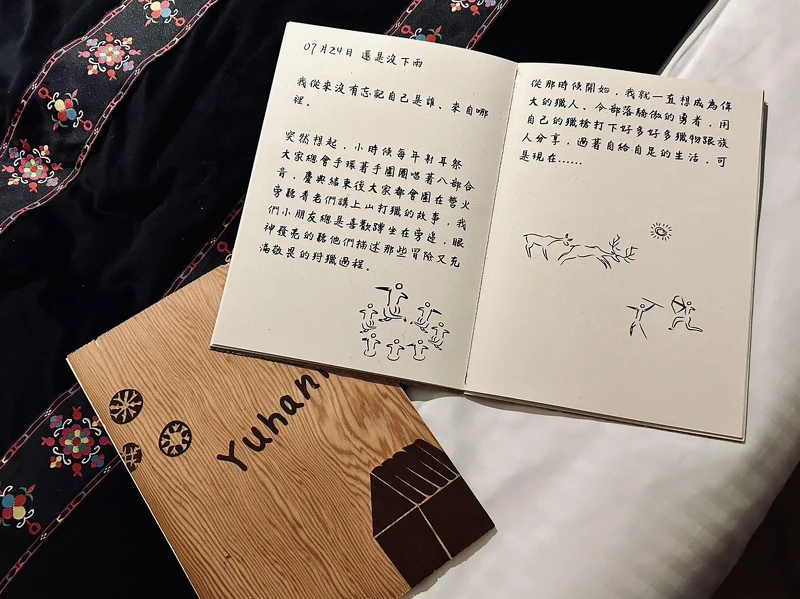 07月24日 還是沒下雨
我從來沒有忘記自己是誰、來自哪
裡。
突然想起，小時候每年射耳祭
大家總會手環著手圍圈唱著八部合
音，慶典結束後大家都會圍在營火
旁聽耆老們講上山打獵的故事，我
們小朋友總是喜歡蹲坐在旁邊，眼
神發亮的聽他們描述那些冒險又充
滿敬畏的狩獵過程。
從那時候開始，我就一直想成為偉
大的獵人、令部落驕傲的勇者，用
自己的獵槍打下好多好多獵物跟族
人分享，過著自給自足的生活，可
是現在……
Yuhani